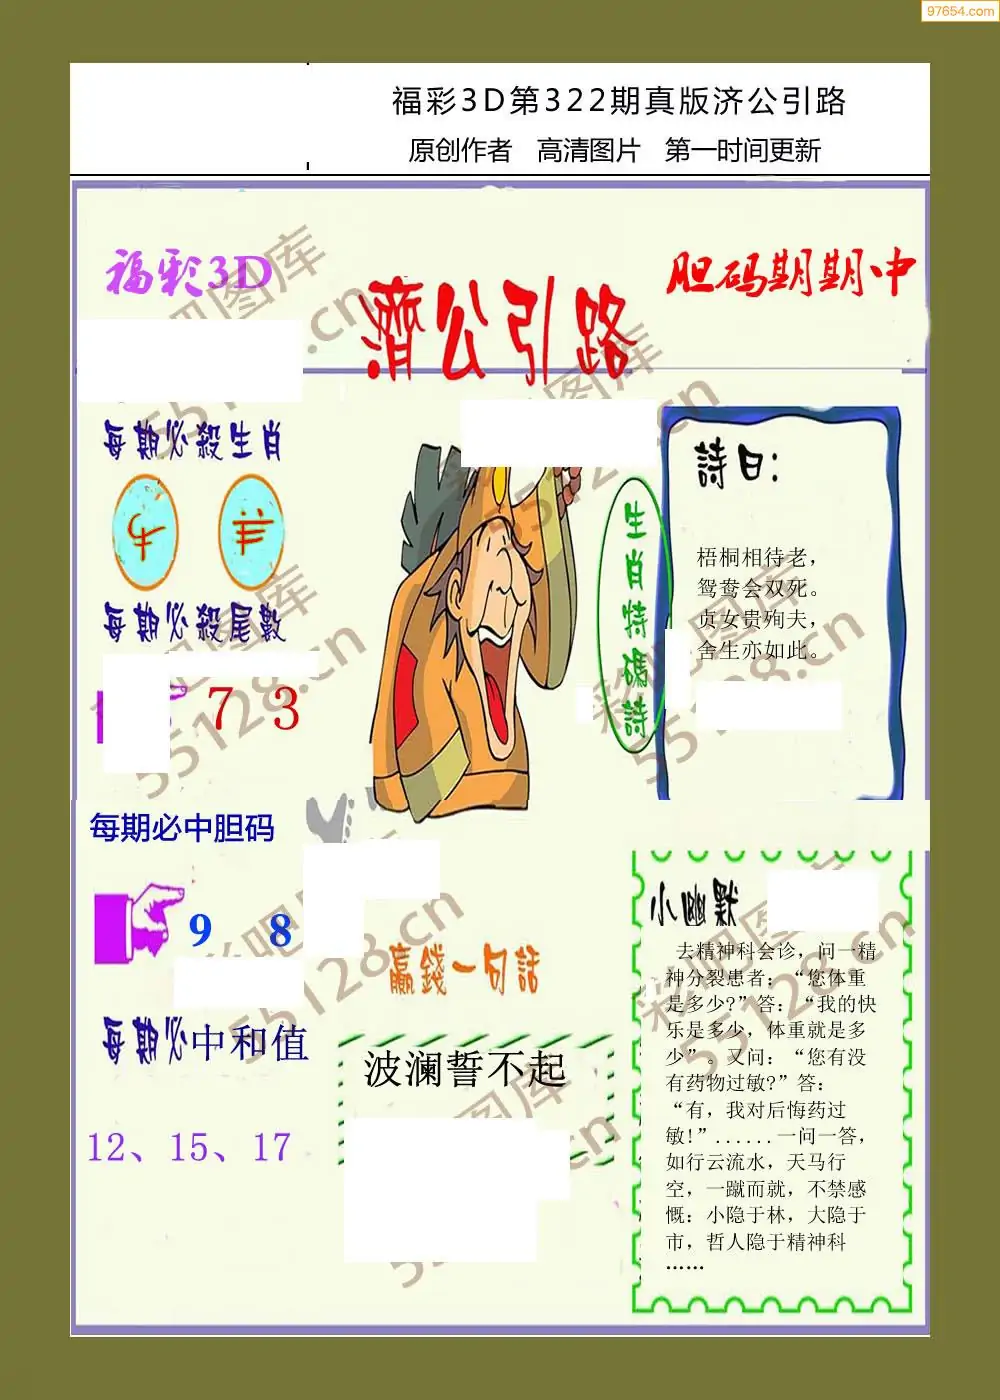 97654.com
福彩3D第322期真版济公引路
原创作者 高清图片 第一时间更新
福彩3D
濟公引路
胆码期期中
每期必殺生肖
牛 羊
每期必殺尾數
7 3
每期必中胆码
9 8
每期必中和值
12、15、17
生肖特碼詩
贏錢一句話
波澜誓不起
詩曰：
梧桐相待老，
鸳鸯会双死。
贞女贵殉夫，
舍生亦如此。
小幽默
去精神科会诊，问一精
神分裂患者：“您体重
是多少?”答：“我的快
乐是多少，体重就是多
少”。又问：“您有没
有药物过敏?”答：
“有，我对后悔药过
敏!”......一问一答，
如行云流水，天马行
空，一蹴而就，不禁感
慨：小隐于林，大隐于
市，哲人隐于精神科
……
彩吧图库
55128.cn